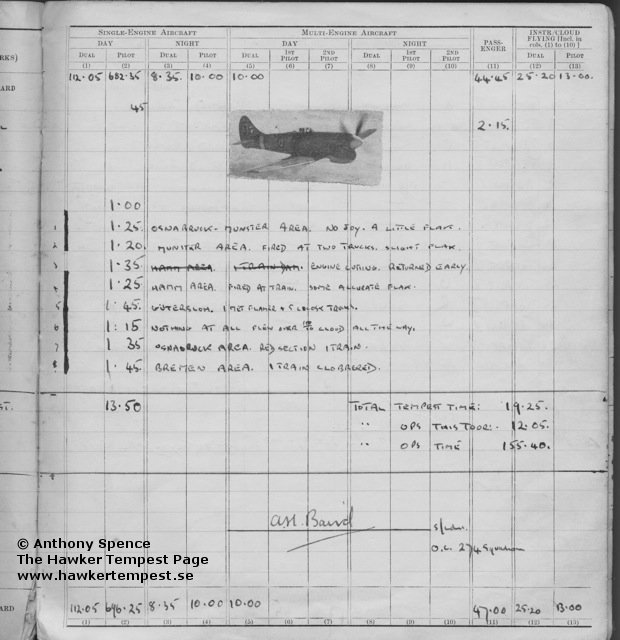 SINGLE-ENGINE AIRCRAFT MULTI-ENGINE AIRCRAFT PASS-ENGER INSTR/CLOUD FLYING [Incl. in cols. (1) to (10)]
DAY NIGHT DAY NIGHT
DUAL PILOT DUAL PILOT DUAL 1ST PILOT 2ND PILOT DUAL 1ST PILOT 2ND PILOT DUAL PILOT
(1) (2) (3) (4) (5) (6) (7) (8) (9) (10) (11) (12) (13)
112.05 682.35 8.35 10.00 10.00 44.45 25.20 13.00
45
2.15
1.00
1 1.25 OSNABRUCK - MUNSTER AREA. NO JOY. A LITTLE FLAK.
2 1.20 MUNSTER AREA. FIRED AT TWO TRUCKS. SLIGHT FLAK.
3 1.35 HAMM AREA. 1 TRAIN ENGINE CUTTING. RETURNED EARLY.
4 1.25 HAMM AREA. FIRED AT TRAIN. SOME ACCURATE FLAK.
5 1.45 GUTERSLOH. 1 MET FLAMER + 5
6 1.15 NOTHING AT ALL FLEW OVER CLOUD ALL THE WAY.
7 1.35 OSNABRUCK AREA. RED SECTION 1 TRAIN.
8 1.45 BREMEN AREA. 1 TRAIN CLOBBERED.
13.50 TOTAL TEMPEST TIME: 19.25.
" OPS THIS TOUR: 12.05.
" OPS TIME 155.40.
A.H. Baird S/Ldr.
O.C. 274 Squadron
© Anthony Spence
The Hawker Tempest Page
www.hawkertempest.se
112.05 696.25 8.35 10.00 10.00 47.00 25.20 13.00
(1) (2) (3) (4) (5) (6) (7) (8) (9) (10) (11) (12) (13)